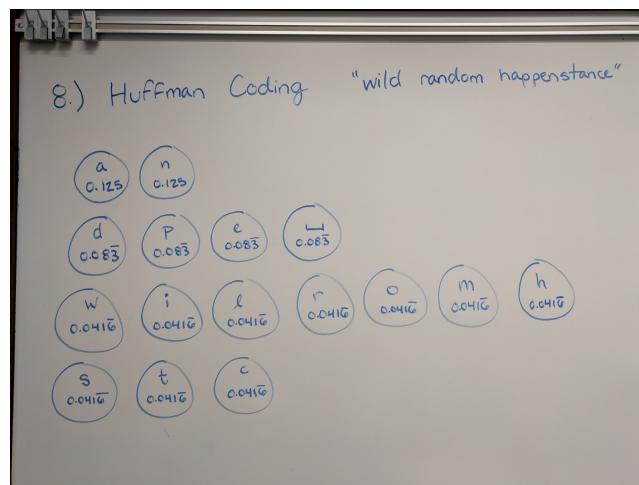 8.) Huffman Coding "wild random happenstance"
a n
0.125 0.125
d p e ⎵
0.083̅ 0.083̅ 0.083̅ 0.083̅
w i l r o m h
0.0416̅ 0.0416̅ 0.0416̅ 0.0416̅ 0.0416̅ 0.0416̅ 0.0416̅
s t c
0.0416̅ 0.0416̅ 0.0416̅